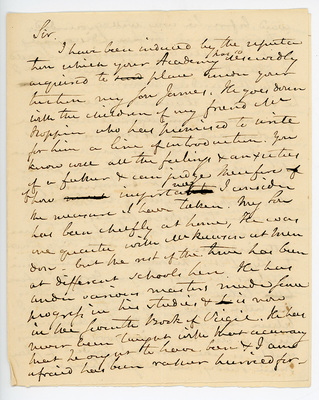 Sir
I have been induced by the reputa-
tion which your Academy has deservedly
acquired to place under your
tuition my son James. He goes down
with the children of my friend Mr
who has promised to write
for him a line of introduction. You
know well all the feelings & anxieties
of a father & can judge therefore of
how important I consider
the measure I have taken. My Son
has been chiefly at home, He was
one quarter with Mr at
but the rest of the time has been
at different schools here. He has
under various masters made some
progress in his studies & is now
in the fourth Book of Virgil. He has
never been taught with that accuracy
that he ought to have been & I am
afraid has been rather hurried for